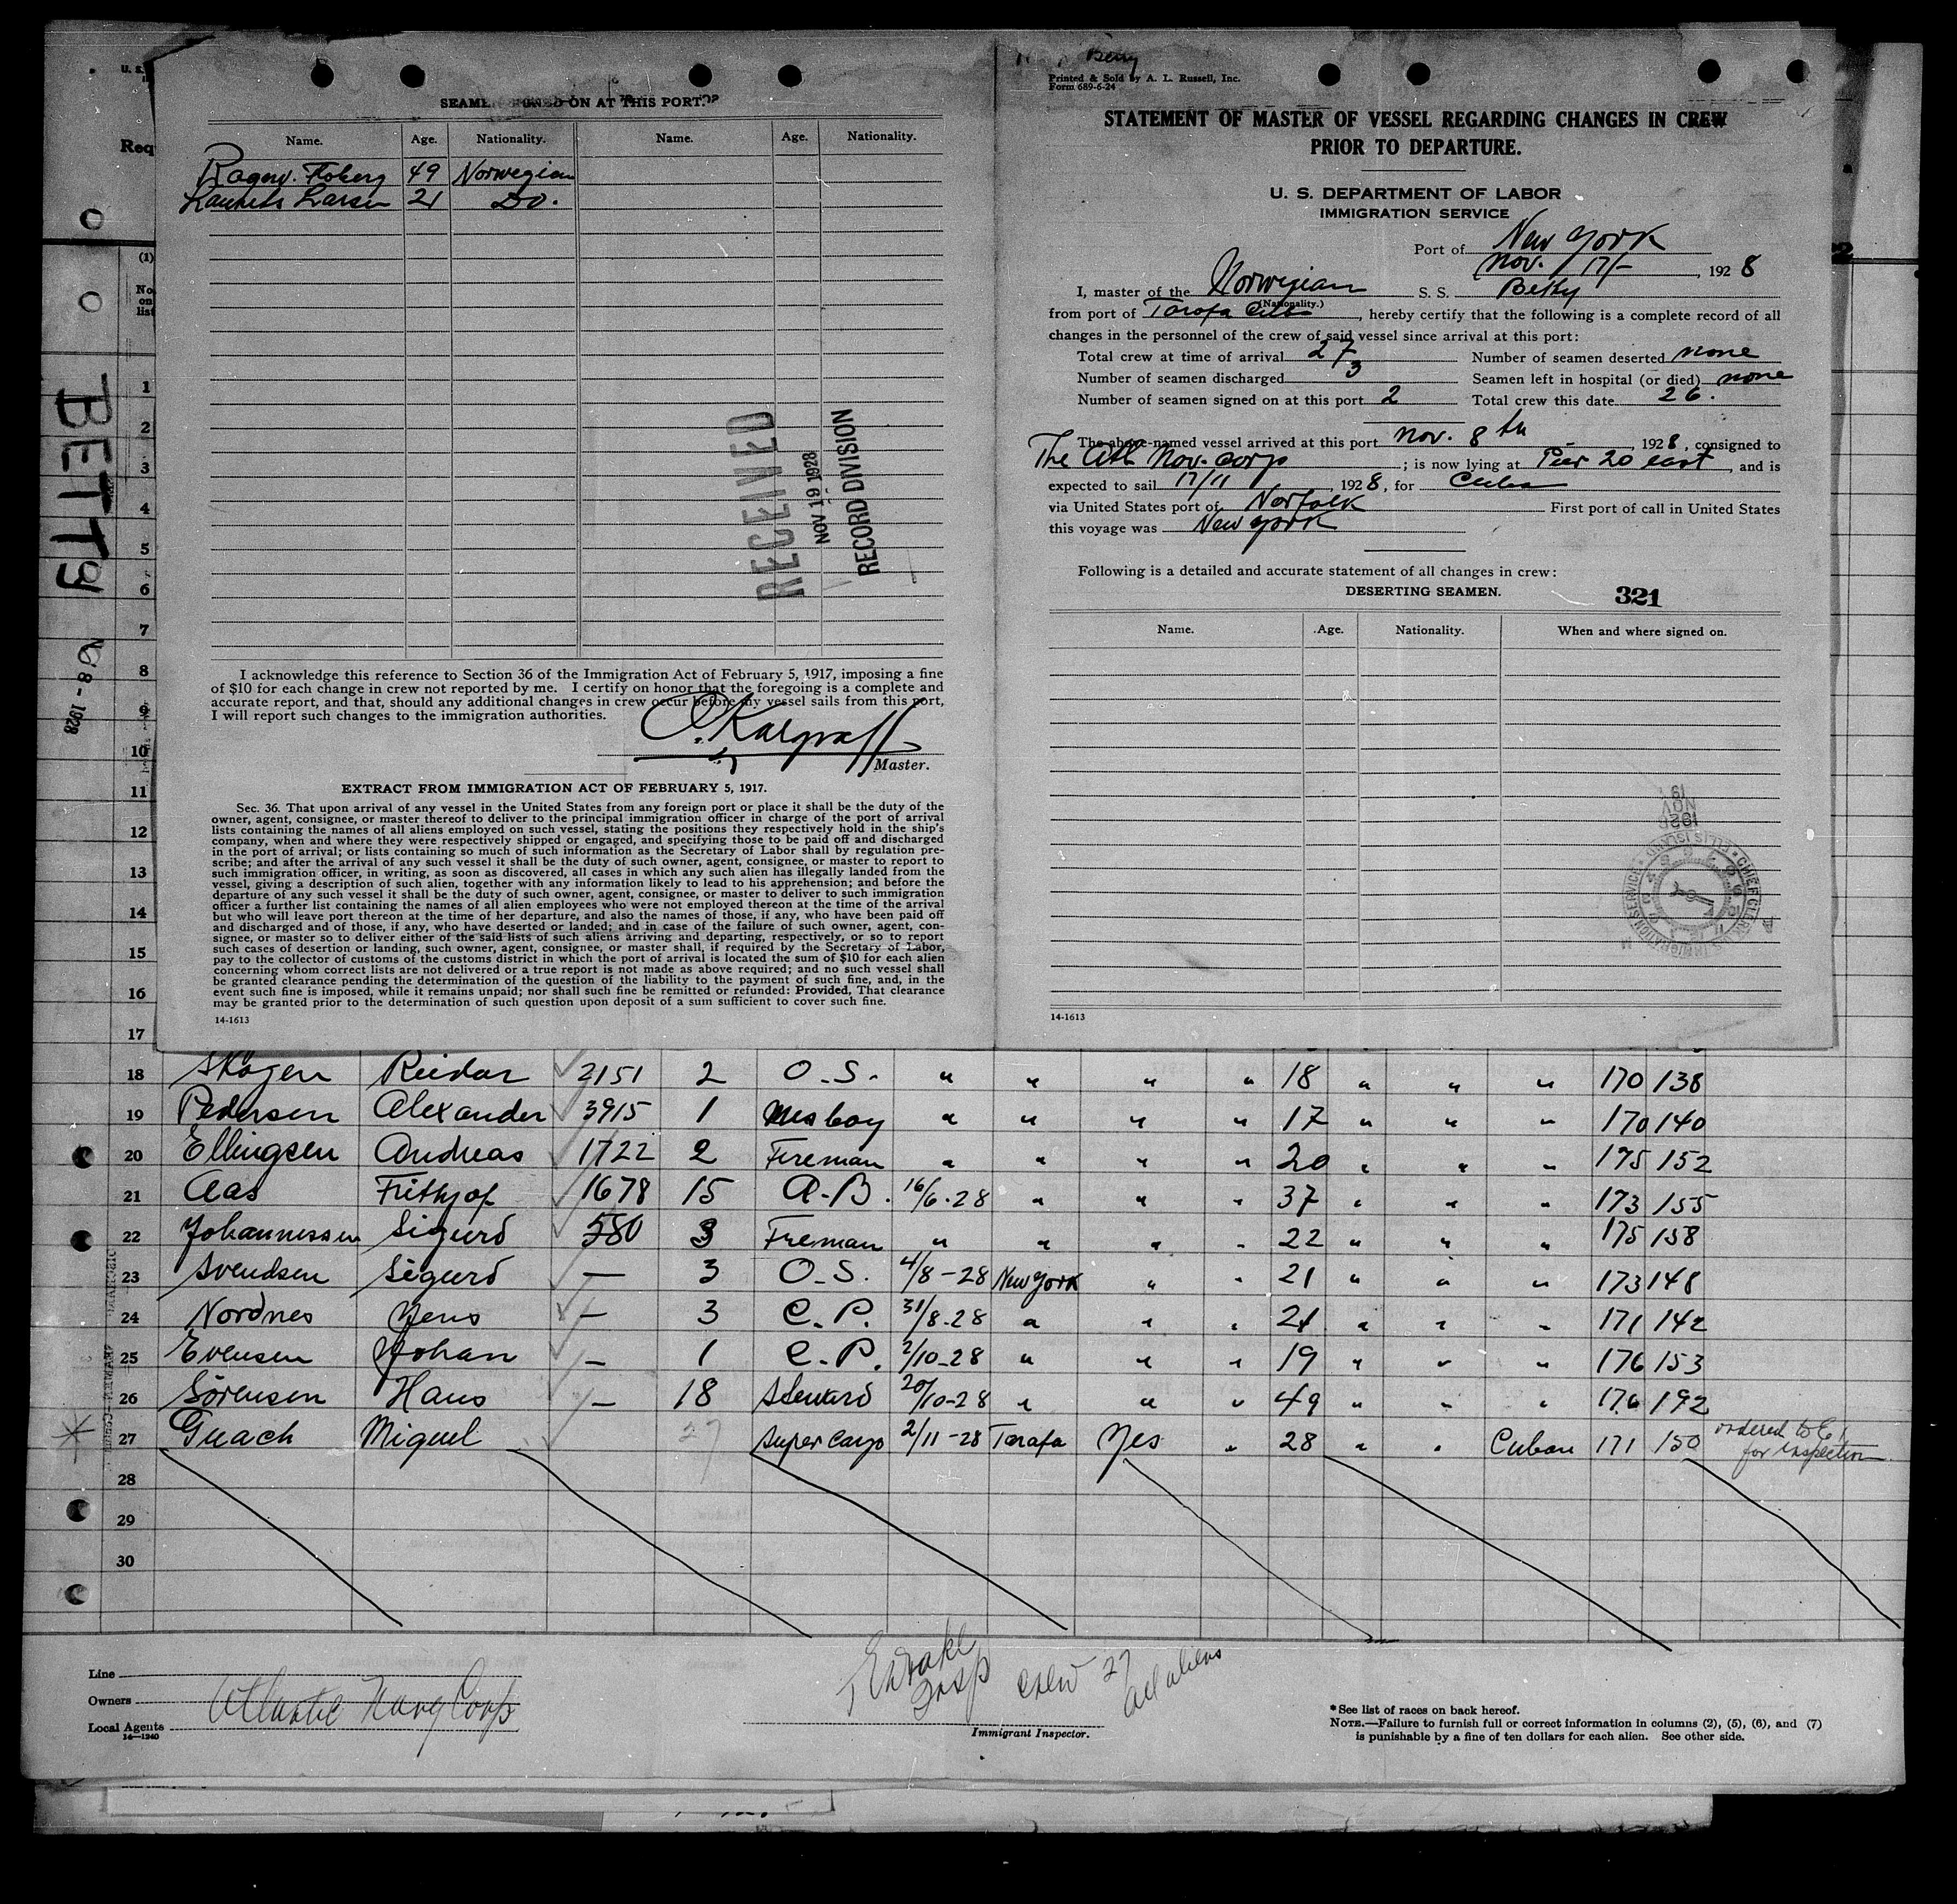 SEAMEN SIGNED ON AT THIS PORT.
Name. Age. Nationality. Name. Age. Nationality.
49 Norwegian
Larsen 21 Do.
RECEIVED
NOV 19 1928
RECORD DIVISION
I acknowledge this reference to Section 36 of the Immigration Act of February 5, 1917, imposing a fine
of $10 for each change in crew not reported by me. I certify on honor that the foregoing is a complete and
accurate report, and that, should any additional changes in crew occur before my vessel sails from this port,
I will report such changes to the immigration authorities.
Master.
EXTRACT FROM IMMIGRATION ACT OF FEBRUARY 5, 1917.
Sec. 36. That upon arrival of any vessel in the United States from any foreign port or place it shall be the duty of the
owner, agent, consignee, or master thereof to deliver to the principal immigration officer in charge of the port of arrival
lists containing the names of all aliens employed on such vessel, stating the positions they respectively hold in the ship's
company, when and where they were respectively shipped or engaged, and specifying those to be paid off and discharged
in the port of arrival; or lists containing so much of such information as the Secretary of Labor shall by regulation pre-
scribe; and after the arrival of any such vessel it shall be the duty of such owner, agent, consignee, or master to report to
such immigration officer, in writing, as soon as discovered, all cases in which any such alien has illegally landed from the
vessel, giving a description of such alien, together with any information likely to lead to his apprehension; and before the
departure of any such vessel it shall be the duty of such owner, agent, consignee, or master to deliver to such immigration
officer a further list containing the names of all alien employees who were not employed thereon at the time of the arrival
but who will leave port thereon at the time of her departure, and also the names of those, if any, who have been paid off
and discharged and of those, if any, who have deserted or landed; and in case of the failure of such owner, agent, con-
signee, or master so to deliver either of the said lists of such aliens arriving and departing, respectively, or so to report
such cases of desertion or landing, such owner, agent, consignee, or master shall, if required by the Secretary of Labor,
pay to the collector of customs of the customs district in which the port of arrival is located the sum of $10 for each alien
concerning whom correct lists are not delivered or a true report is not made as above required; and no such vessel shall
be granted clearance pending the determination of the question of the liability to the payment of such fine, and, in the
event such fine is imposed, while it remains unpaid; nor shall such fine be remitted or refunded: Provided, That clearance
may be granted prior to the determination of such question upon deposit of a sum sufficient to cover such fine.
14-1613
Printed & Sold by A. L. Russell, Inc.
Form 689-6-24
STATEMENT OF MASTER OF VESSEL REGARDING CHANGES IN CREW
PRIOR TO DEPARTURE.
U. S. DEPARTMENT OF LABOR
IMMIGRATION SERVICE
Port of New York
Nov. 17/-, 1928
I, master of the Norwegian S. S. Betty
(Nationality.)
from port of Tarafa Cuba, hereby certify that the following is a complete record of all
changes in the personnel of the crew of said vessel since arrival at this port:
Total crew at time of arrival 27 Number of seamen deserted none
Number of seamen discharged 3 Seamen left in hospital (or died) none
Number of seamen signed on at this port 2 Total crew this date 26.
The above-named vessel arrived at this port Nov. 8th, 1928, consigned to
The Atl. Nav. Corp; is now lying at Pier 20 east, and is
expected to sail 17/11, 1928, for Cuba
via United States port of Norfolk First port of call in United States
this voyage was New York
Following is a detailed and accurate statement of all changes in crew:
DESERTING SEAMEN.
321
Name. Age. Nationality. When and where signed on.
14-1613
BETTY
8 - 1928
U. S.
Req
(1)
No. on list
1
2
3
4
5
6
7
8
9
10
11
12
13
14
15
16
17
18 Skogen Reidar 2151 2 O.S. " " " " 18 " " " 170 138
19 Pedersen Alexander 3915 1 Mesboy " " " " 17 " " " 170 140
20 Ellingsen Andreas 1722 2 Fireman " " " " 20 " " " 175 152
21 Aas Frithjof 1678 15 A.B. 16/6-28 " " " 37 " " " 173 155
22 Johannessen Sigurd 580 3 Fireman " " " " 22 " " " 175 158
23 Svendsen Sigurd — 3 O.S. 4/8-28 New York " " 21 " " " 173 148
24 Nordnes Jens — 3 C.P. 31/8-28 " " " 21 " " " 171 142
25 Evensen Johan — 1 C.P. 2/10-28 " " " 19 " " " 176 153
26 Sörensen Hans — 18 Steward 20/10-28 " " " 49 " " " 176 192
27 Guach Miguel 27 Supercargo 2/11-28 Tarafa Yes " 28 " " Cuban 171 150 ordered to E I for inspection
28
29
30
Line
Owners
Local Agents Atlantic Navg Corp
14-1240
Insp crew 27 all aliens
Immigrant Inspector.
*See list of races on back hereof.
NOTE.—Failure to furnish full or correct information in columns (2), (5), (6), and (7)
is punishable by a fine of ten dollars for each alien. See other side.